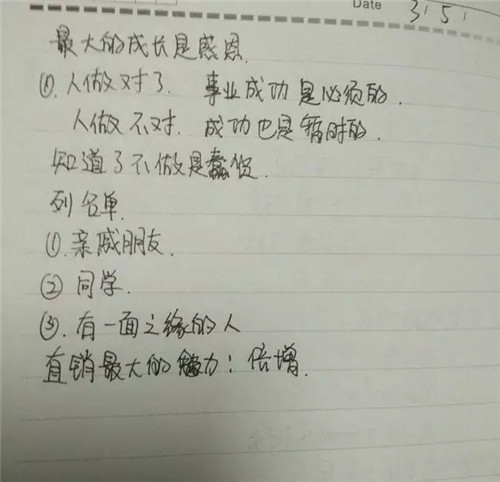 Date 3 5 1
最大的成长是感恩
①.人做对了. 事业成功是必须的.
人做不对. 成功也是暂时的.
知道了不做是蠢货.
列名单.
①.亲戚朋友.
② 同学.
③.有一面之缘的人
直销最大的魅力:倍增.